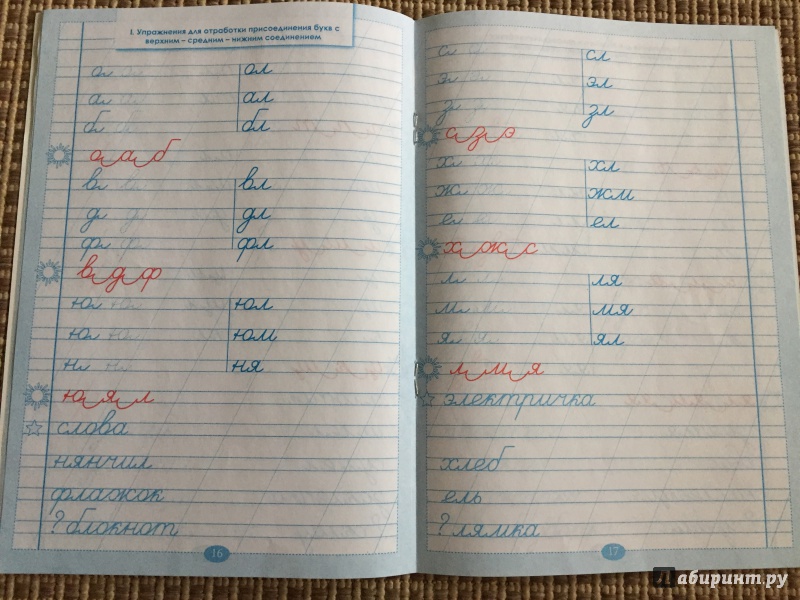 I. Упражнения для отработки присоединения букв с
верхним – средним – нижним соединением
ол ол
ал ал
бл бл
о а б
вл вл
дл дл
фл фл
в д ф
юл юл
юл юм
нл ня
ю я л
слова
нянчил
флажок
? блокнот
16
сл сл
эл эл
зл зл
с з э
хл хл
жл жм
ел ел
х ж с
ля
мя
ял ял
л м я
электричка
хлеб
ель
? лямка
17
Лабиринт.ру